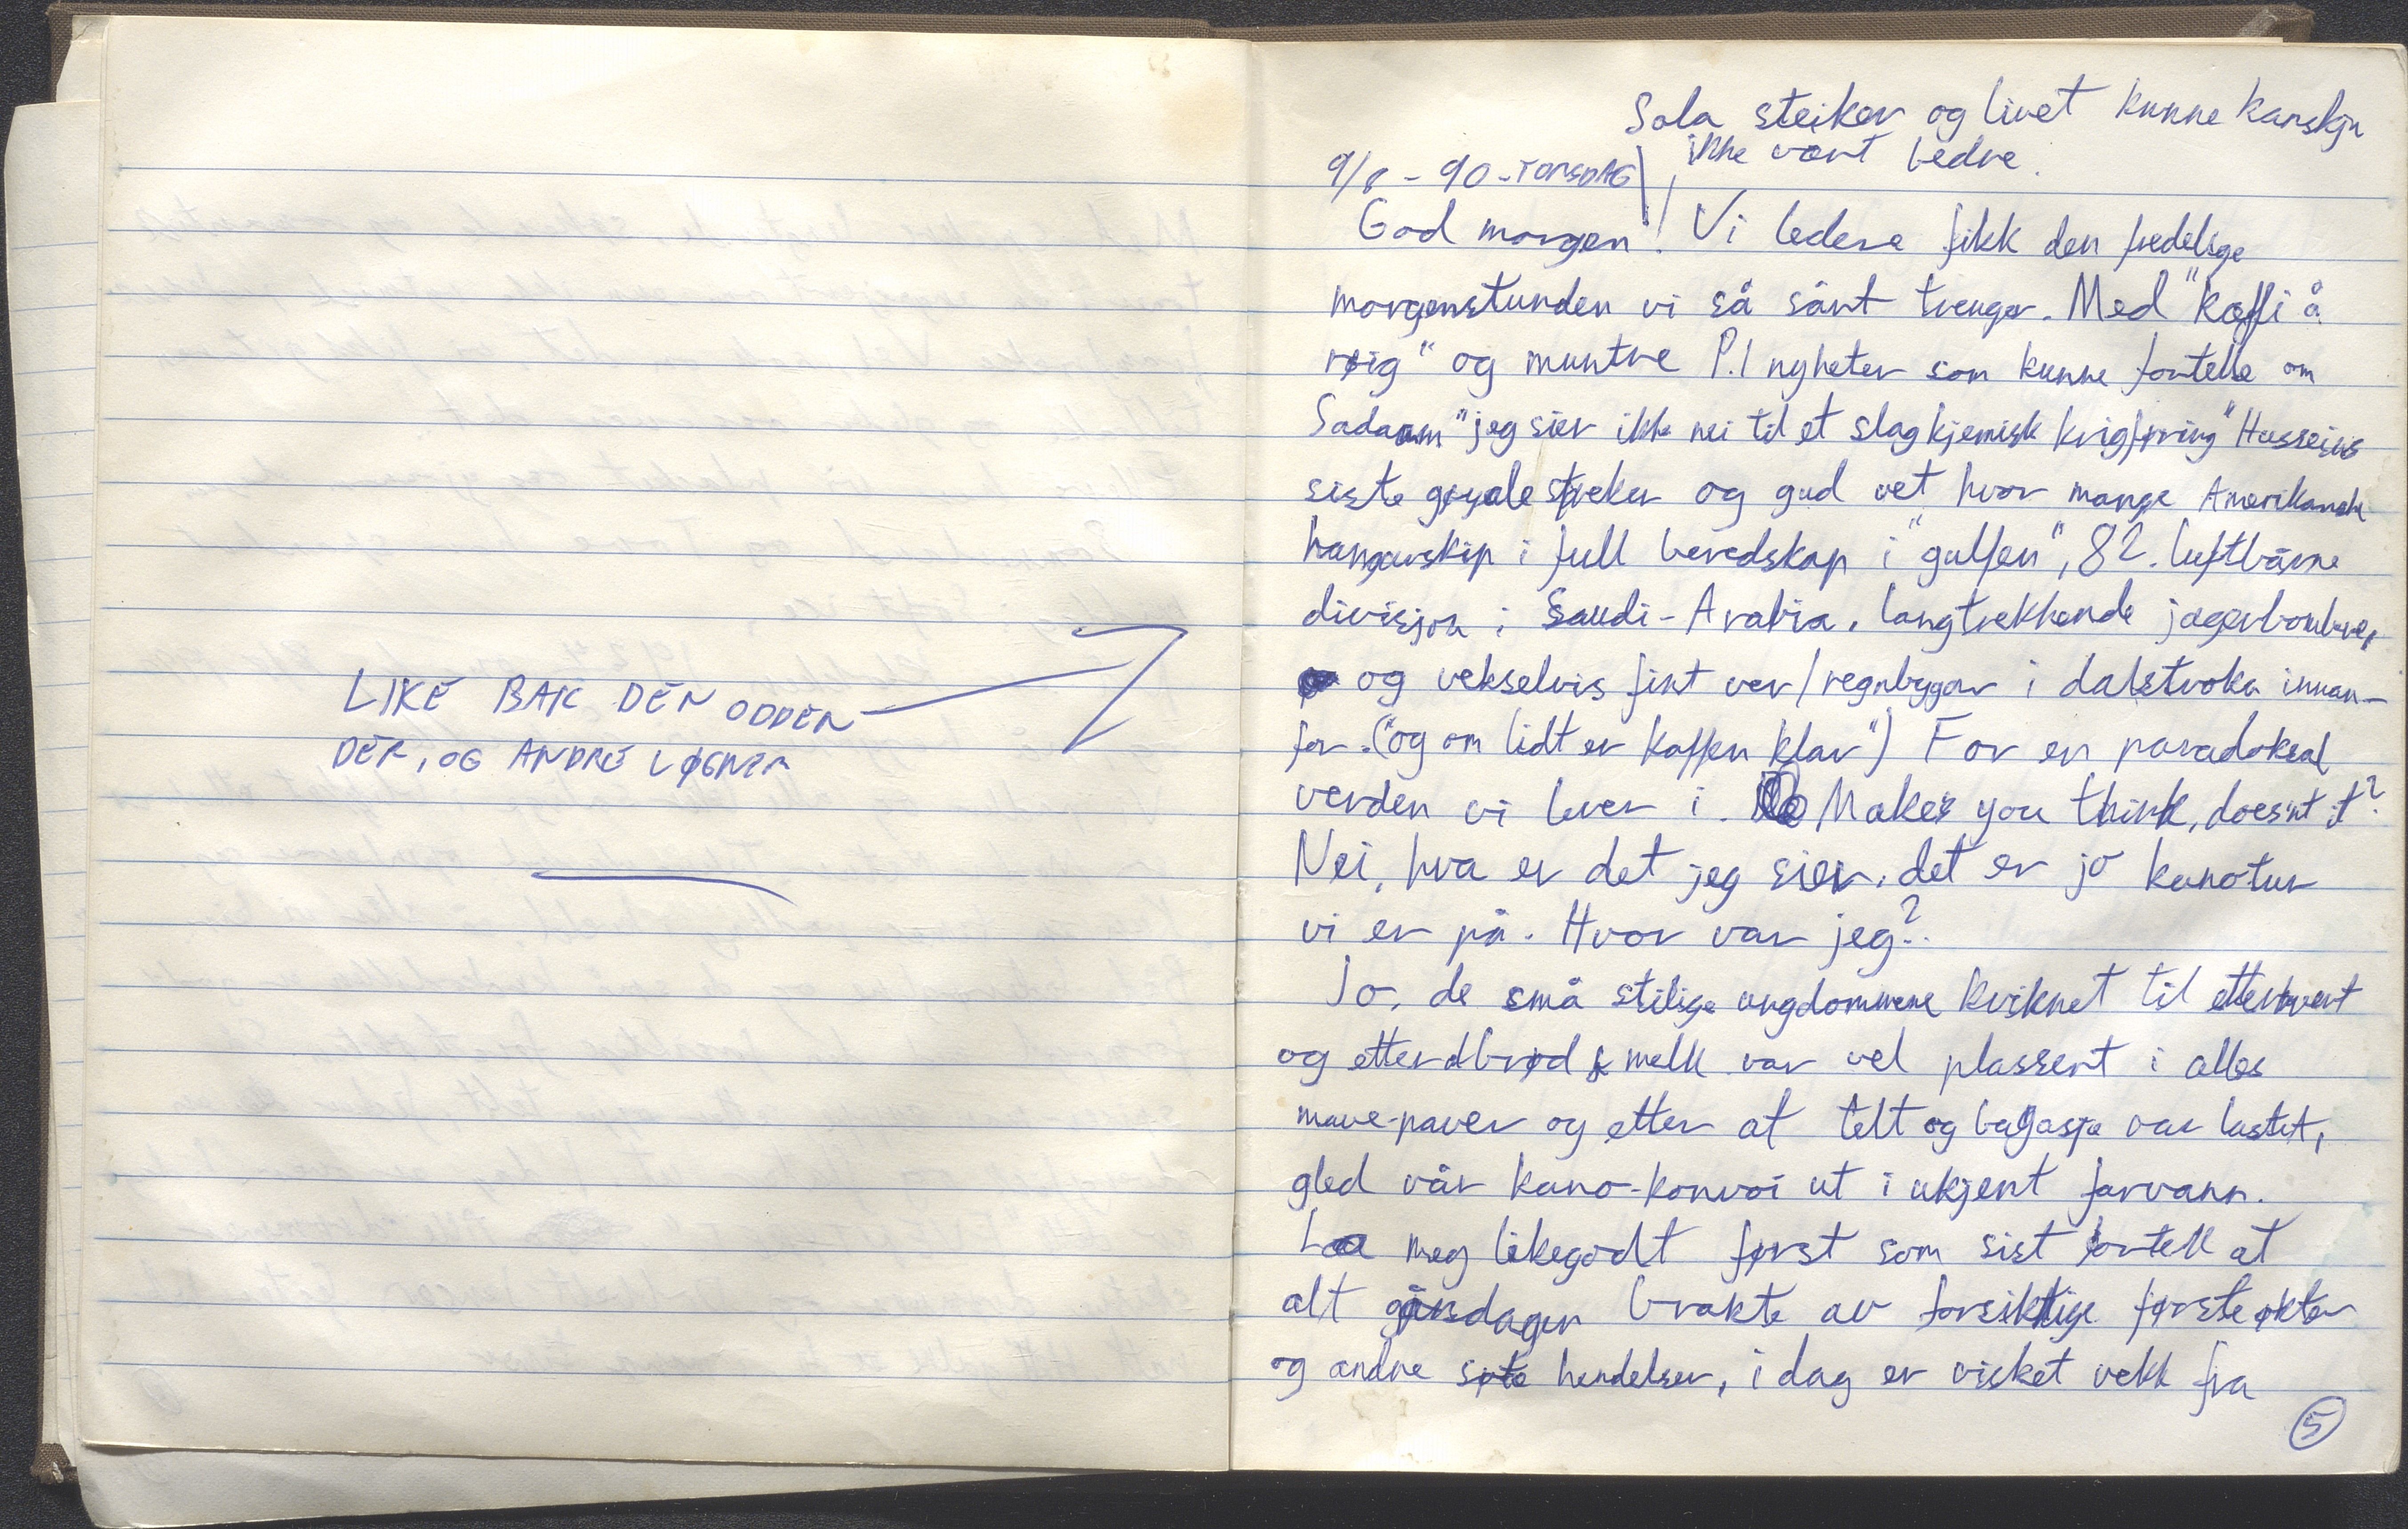 LIKE BAK DEN ODDEN
DER, OG ANDRE LØGNER
Sola steiker og livet kunne kanskje
ikke vært bedre.
9/8 - 90 - TORSDAG
God morgen! Vi ledere fikk den fredelige
morgenstunden vi så sårt trenger. Med "kaffi å
røig" og muntre P.1 nyheter som kunne fortelle om
Sadaam "jeg sier ikke nei til et slag kjemisk krigføring" Husseins
siste gøyale streker og gud vet hvor mange Amerikanske
hangarskip i full beredskap i "gulfen", 82. luftbårne
divisjon i Saudi-Arabia, langtrekkende jagerbombere,
og vekselvis fint vær/regnbyger i dalstroka innan-
for. ("og om lidt er kaffen klar") For en paradoksal
verden vi lever i. Makes you think, doesn't it?
Nei, hva er det jeg sier, det er jo kanotur
vi er på. Hvor var jeg?
Jo, de små stilige ungdommene kviknet til etterhvert
og etter at brød & melk var vel plassert i alles
mave-paver og etter at telt og bagasje var lastet,
gled vår kano-konvoi ut i ukjent farvann.
La meg likegodt først som sist fortelle at
alt gårsdagen brakte av forsiktige første økter
og andre hendelser, i dag er visket vekk fra
5